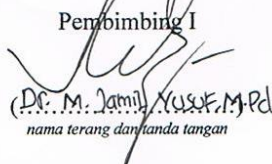 Pembimbing I
(Dr. M. Jamil Yusuf, M.Pd
nama terang dan tanda tangan